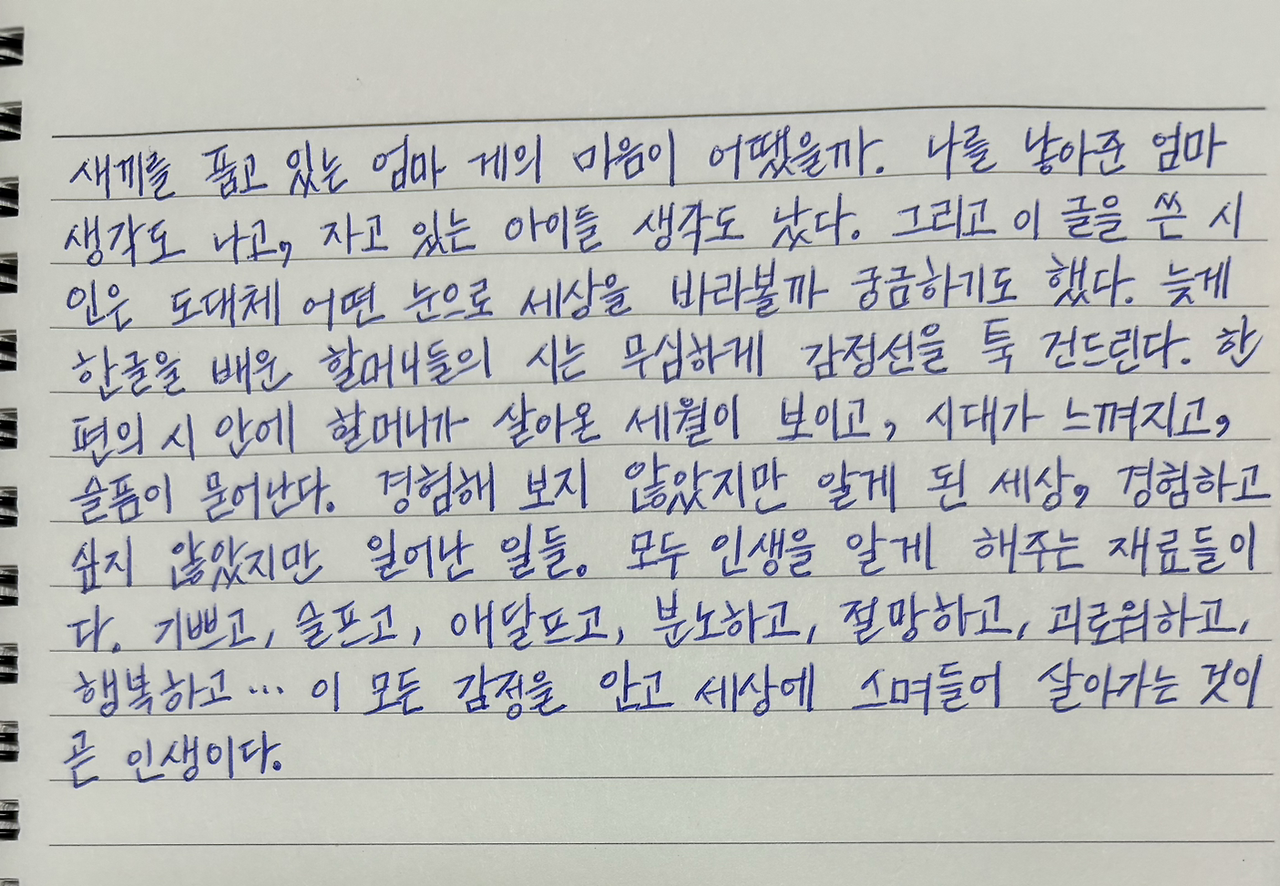 새끼를 품고 있는 엄마 게의 마음이 어땠을까. 나를 낳아준 엄마
생각도 나고, 자고 있는 아이들 생각도 났다. 그리고 이 글을 쓴 시
인은 도대체 어떤 눈으로 세상을 바라볼까 궁금하기도 했다. 늦게
한글을 배운 할머니들의 시는 무심하게 감정선을 툭 건드린다. 한
편의 시 안에 할머니가 살아온 세월이 보이고, 시대가 느껴지고,
슬픔이 묻어난다. 경험해 보지 않았지만 알게 된 세상, 경험하고
싶지 않았지만 일어난 일들. 모두 인생을 알게 해주는 재료들이
다. 기쁘고, 슬프고, 애달프고, 분노하고, 절망하고, 괴로워하고,
행복하고… 이 모든 감정을 안고 세상에 스며들어 살아가는 것이
곧 인생이다.